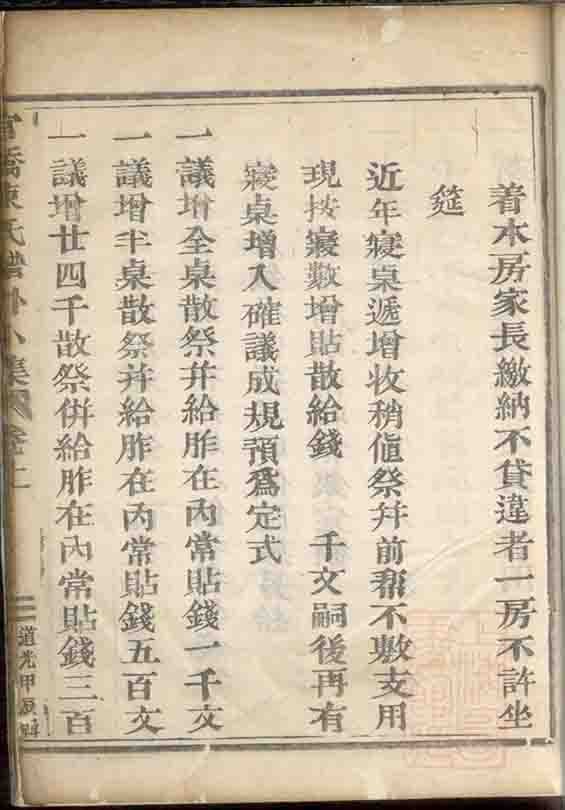 着本房家長繳納不貸違者一房不許坐
筵
近年寢桌遞增收稍値祭并前幫不敷支用
現按寢數增貼散給錢　　千文嗣後再有
寢桌增入確議成規預爲定式
一議增全桌散祭并給胙在內常貼錢一千文
一議增半桌散祭并給胙在內常貼錢五百文
一議增廿四千散祭併給胙在內常貼錢三百
橋陳氏譜外小集 卷上
道光甲辰